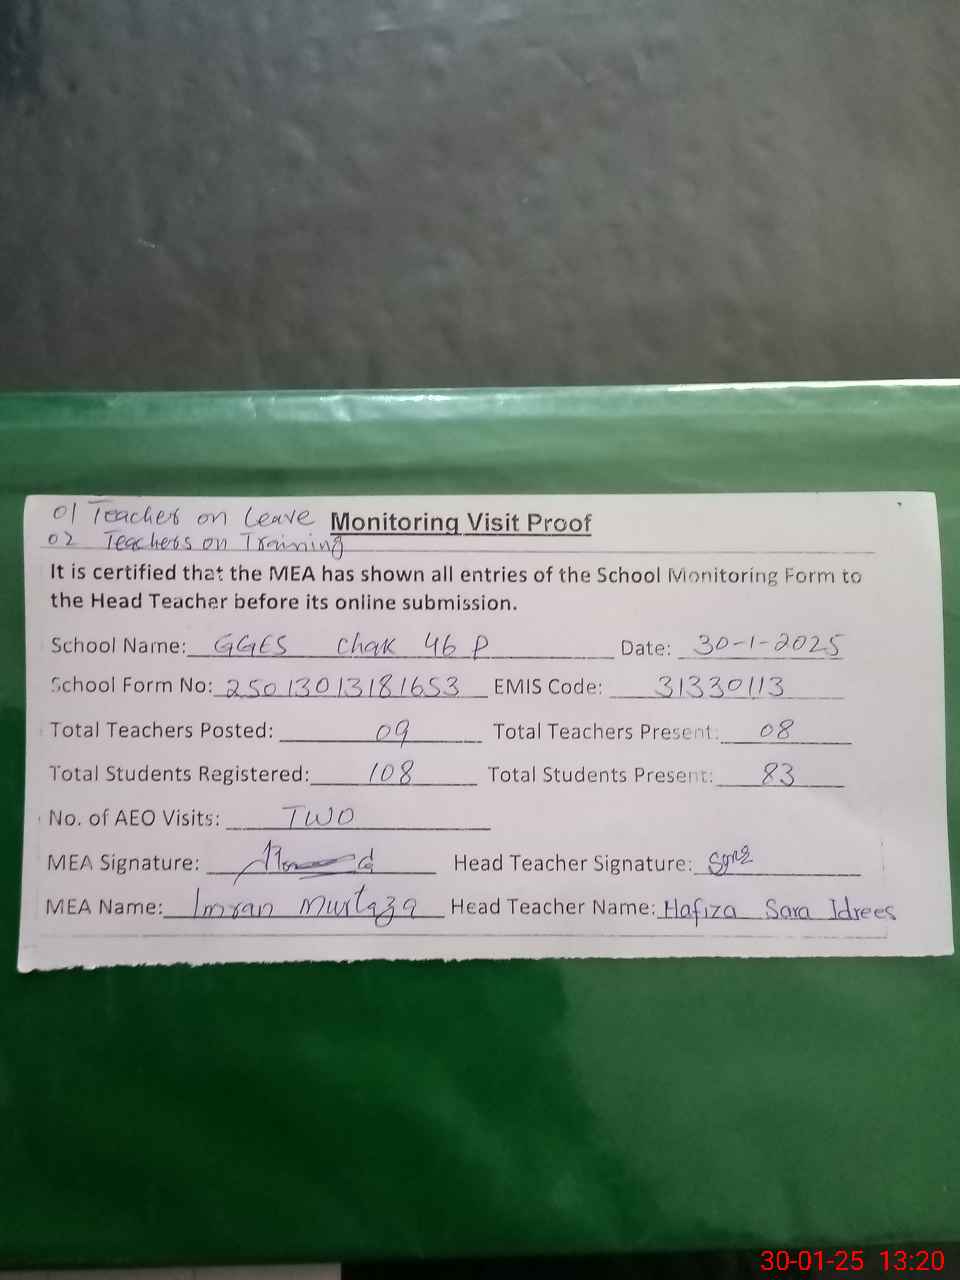 01 Teacher on Leave Monitoring Visit Proof
02 Teachers on Training
It is certified that the MEA has shown all entries of the School Monitoring Form to
the Head Teacher before its online submission.
School Name: GGES Chak 46 P Date: 30-1-2025
School Form No: 25013013181653 EMIS Code: 31330113
Total Teachers Posted: 09 Total Teachers Present: 08
Total Students Registered: 108 Total Students Present: 83
No. of AEO Visits: TWO
MEA Signature: Head Teacher Signature:
MEA Name: Imran Murtaza Head Teacher Name: Hafiza Sara Idrees
30-01-25 13:20